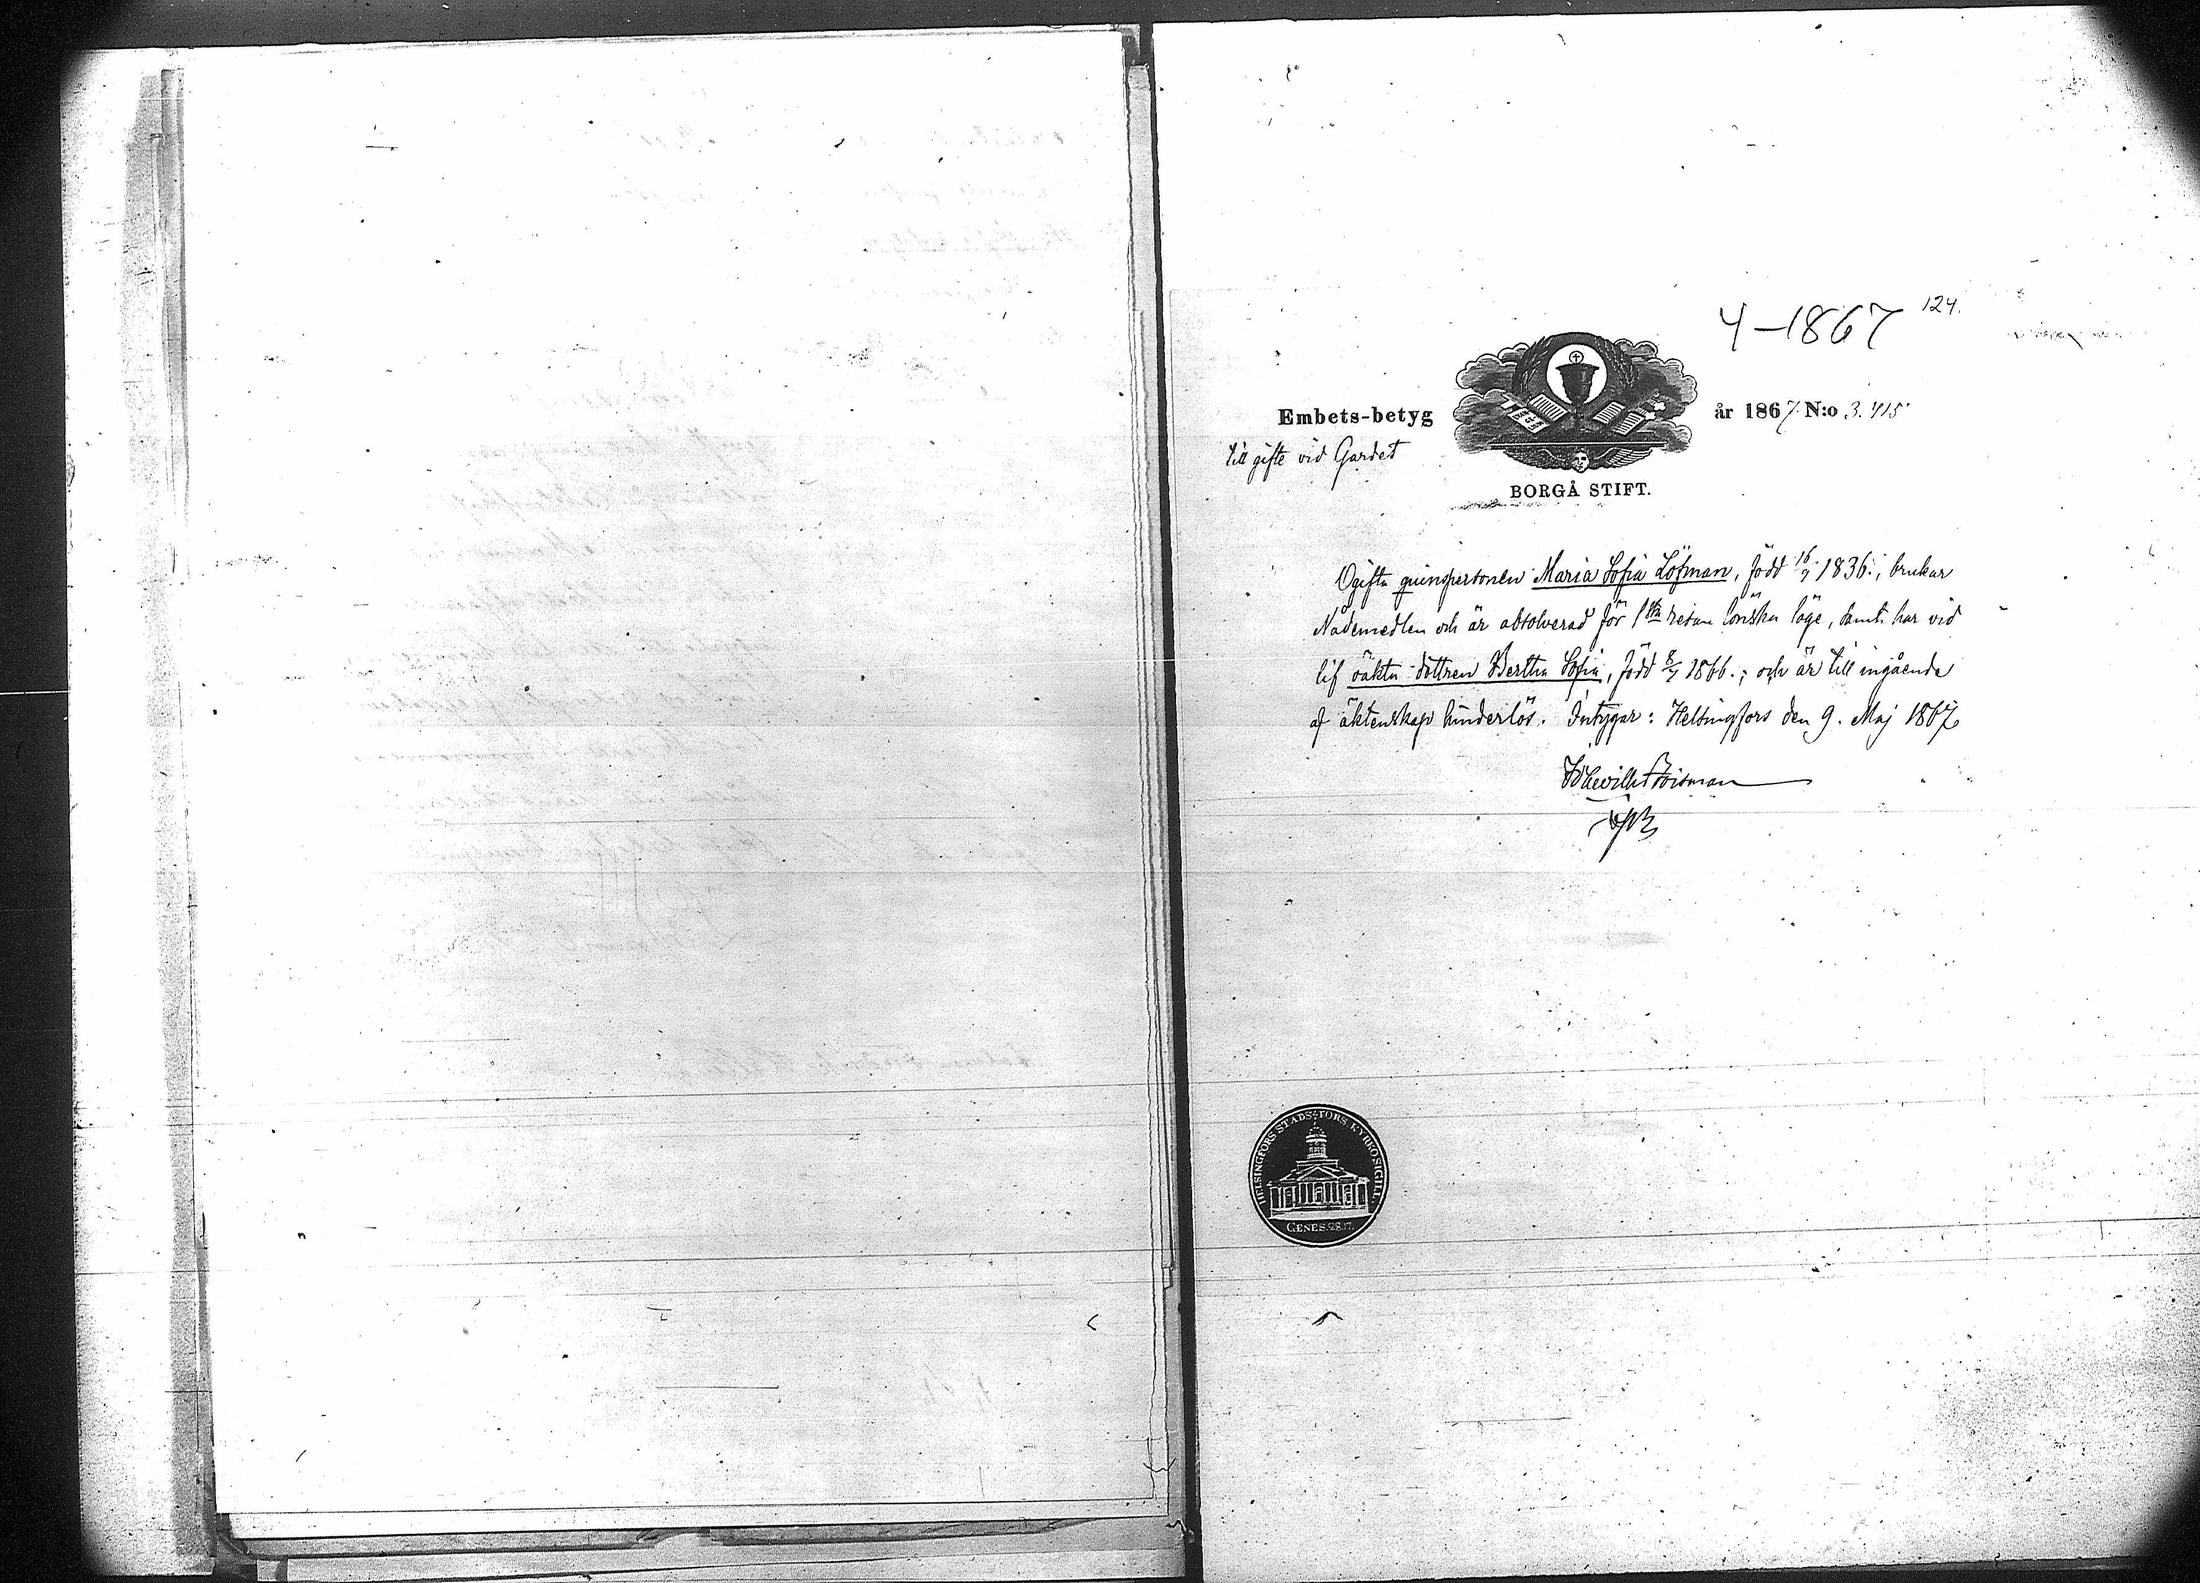 4–1867 124.
Embets-betyg år 1867 N:o 3.415
till gifte vid Gardet
BORGÅ STIFT.
Ogifta qvinspersonen Maria Sofia Löfman, född 16/7 1836:, brukar
Nådemedlen och är absolverad för 1sta resan lönska läge, samt har vid
lif oäkta dottren Bertha Sofia, född 8/7 1866.; och är till ingående
af äktenskap hinderlös. Intygar: Helsingfors den 9. Maj 1867
HELSINGFORS STADS-FÖRS. KYRKOSIGILL.
GENES. 28.17.